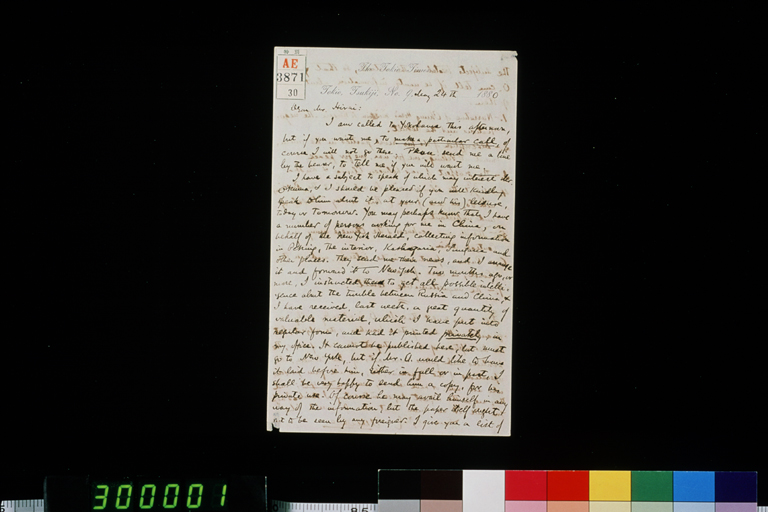 AE
3871
30
The Tokio Times
Tokio, Tsukiji, No. 9, May 24th 1880
Dear Mr.
I am called to Yokohama this afternoon,
but if you wrote me, to make a particular call, of
course I will not go there. Please send me a line
by the bearer, to tell me if you will want me.
I have a subject to speak of which may interest Mr.
& I should be pleased if you will kindly
speak to him about it, at your (and his) leisure,
today or tomorrow. You may perhaps know that I have
a number of persons working for me in China, on
behalf of the New York Herald, collecting information
in Peking, the interior, Kashgaria, and
other places. They send me their news, and I arrange
it and forward it to New York. Two months ago, or
more, I instructed them to get all possible intelli-
gence about the trouble between Russia and China, &
I have received last week, a great quantity of
valuable material, which I have put into
regular form, and had it printed privately, in
my office. It cannot be published here, but must
go to New York, but if Mr. O. would like to have
it laid before him, either in full or in part, I
shall be very happy to send him a copy, for his
private use. Of course he may avail himself in any
way of the information, but the paper itself ought
not to be seen by any foreigner. I give you a list of
300001